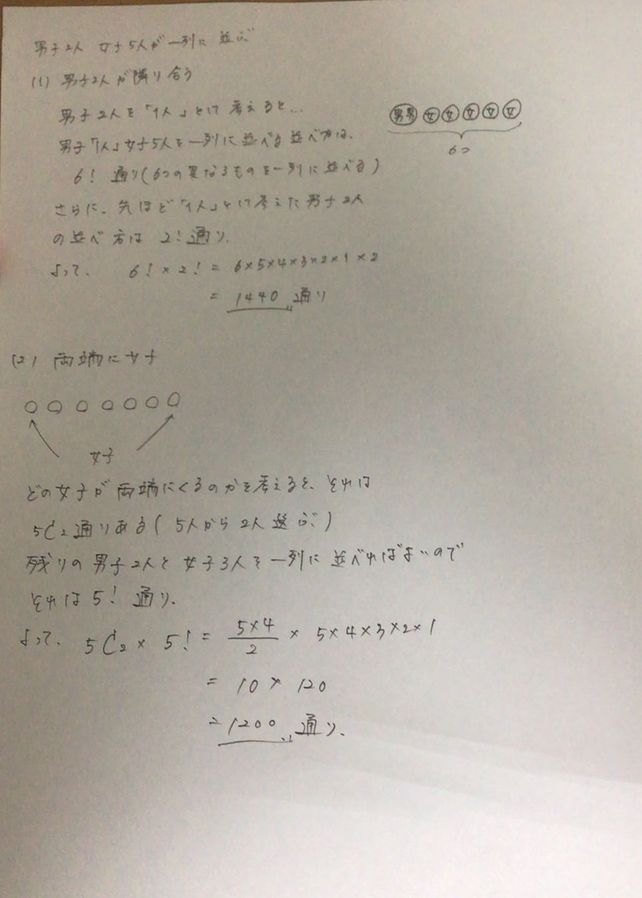 男子2人 女子5人が一列に並ぶ
(1) 男子2人が隣り合う
男子2人を「1人」として考えると…
男子「1人」女子5人を一列に並べる並べ方は、
6! 通り(6つの異なるものを一列に並べる)
さらに、先ほど「1人」として考えた男子2人
の並べ方は 2! 通り.
よって、 6! × 2! = 6×5×4×3×2×1×2
= 1440 通り
男男 女 女 女 女 女
6つ
(2) 両端に女子
女子
どの女子が両端にくるのかを考えると、それは
5C2 通りある(5人から2人並ぶ)
残りの男子2人と女子3人を一列に並べればよいので
それは 5! 通り.
よって、 5C2 × 5! = 5×4/2 × 5×4×3×2×1
= 10 × 120
= 1200 通り.